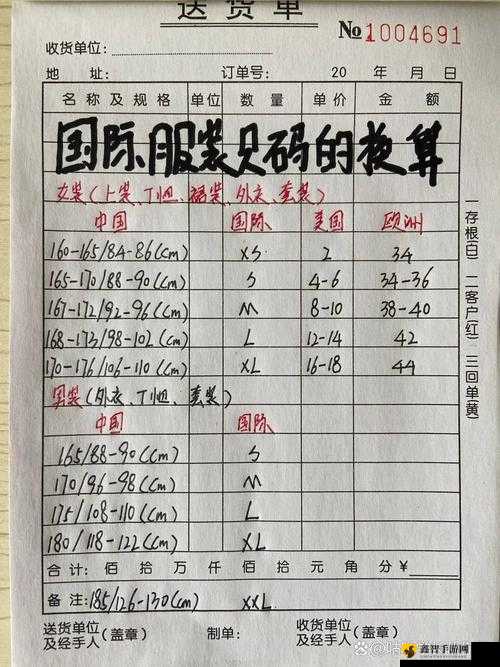 送货单
№1004691
收货单位:
地 址: 订单号: 20 年 月 日
名称及规格 单位 数量 单价 金额
国际服装尺码的换算
女装(上装、T恤、裙装、外衣、套装)
中国 国际 美国 欧洲
160-165/84-86(cm) XS 2 34
165-170/88-90(cm) S 4-6 34-36
167-172/92-96(cm) M 8-10 38-40
168-173/98-102(cm) L 12-14 42
170-176/106-110(cm) XL 16-18 44
男装(外衣、T恤、套装)
中国 国际
165/88-90(cm) S
170/96-98(cm) M
175/108-110(cm) L
180/118-122(cm) XL
合计: 佰 拾 万 仟 佰 拾 元 角 分 ¥
备注: 185/126-130(cm) XXL
送货单位及经手人(盖章) 制单: 收货单位及经手人(盖章)
一存根(白) 二客户(红) 三回单(黄)
鑫智手游网